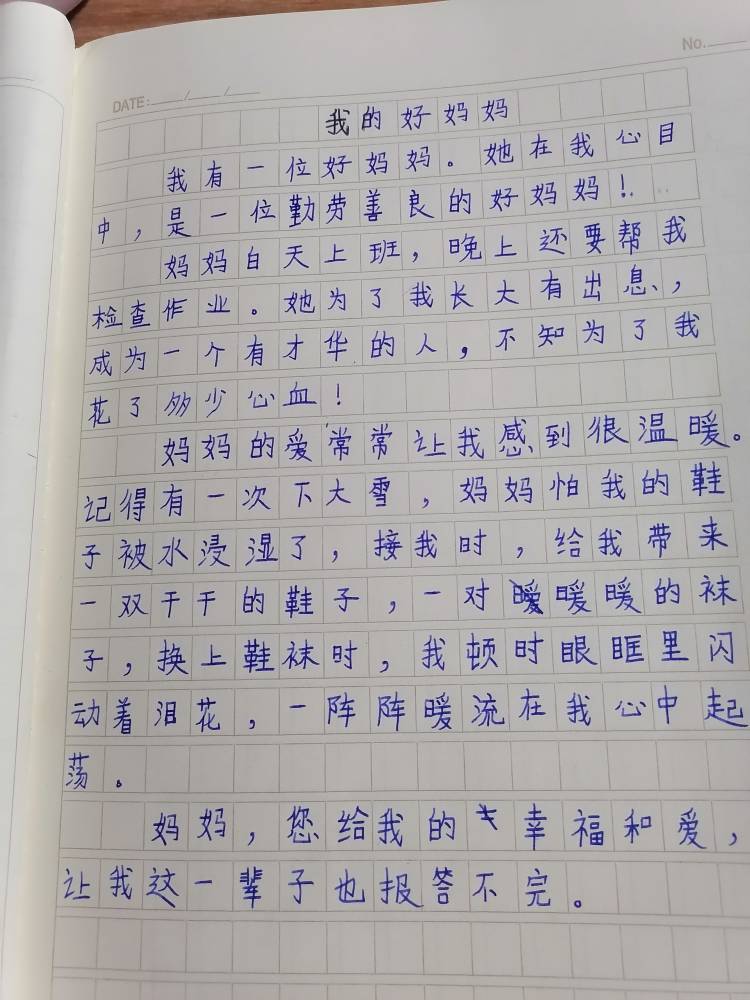 No.
DATE: / /
我的好妈妈
我有一位好妈妈。她在我心目
中，是一位勤劳善良的好妈妈！
妈妈白天上班，晚上还要帮我
检查作业。她为了我长大有出息，
成为一个有才华的人，不知为了我
花了多少心血！
妈妈的爱常常让我感到很温暖。
记得有一次下大雪，妈妈怕我的鞋
子被水浸湿了，接我时，给我带来
一双干干的鞋子，一对暖暖的袜
子，换上鞋袜时，我顿时眼眶里闪
动着泪花，一阵阵暖流在我心中起
荡。
妈妈，您给我的幸福和爱，
让我这一辈子也报答不完。